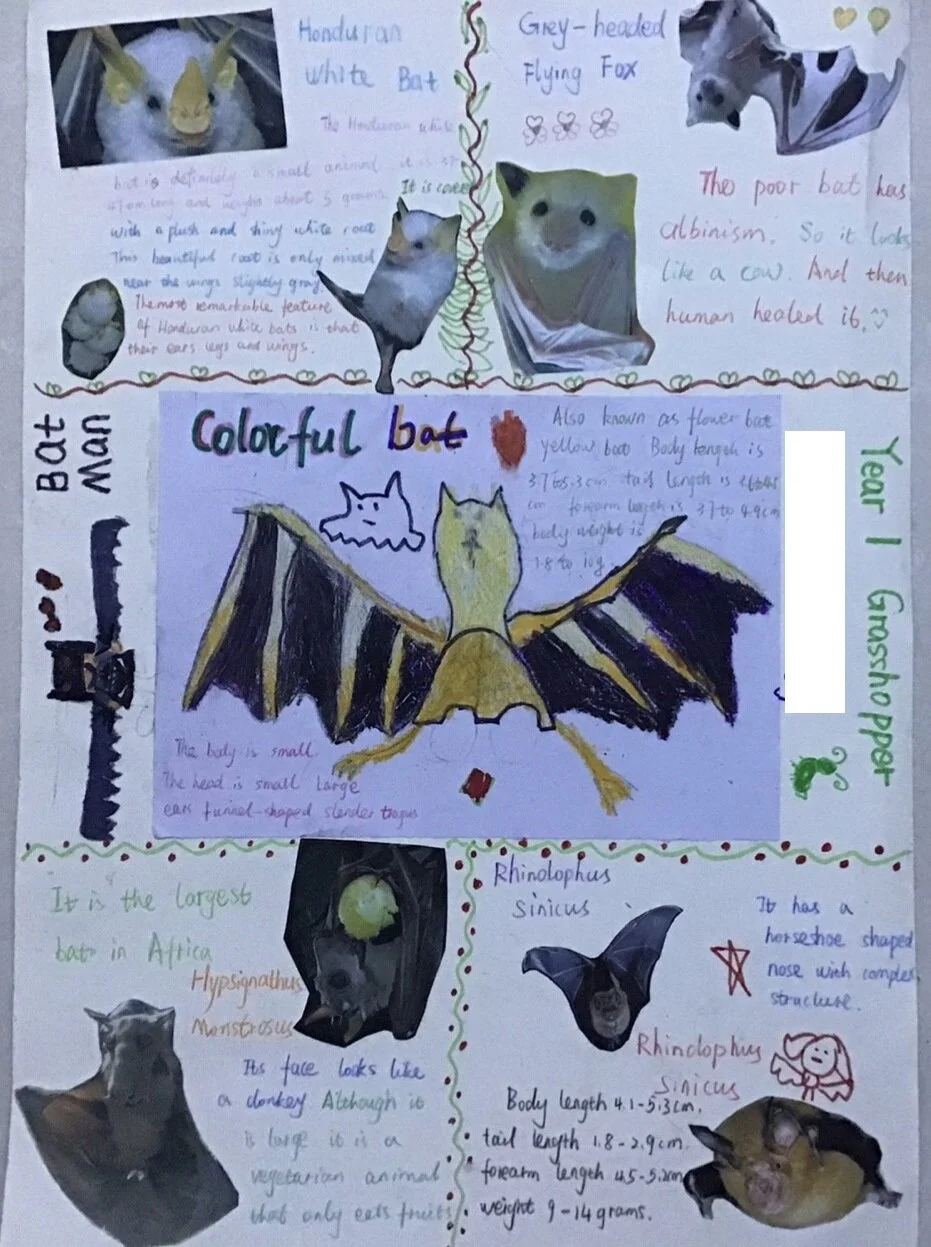 Honduran
White Bat
The Honduran white
bat is definitely a small animal. it is 37-
47mm long and weighs about 5 grams.
It is cover
with a plush and shiny white coat
This beautiful coat is only mixed
near the wings slightly gray
The most remarkable feature
of Honduran white bats is that
their ears legs and wings.
Grey-headed
Flying Fox
The poor bat has
albinism. So it looks
like a cow. And then
human healed it.
Bat
Man
Colorful bat
Also known as flower bat
yellow bat Body length is
3.7 to 5.3cm tail length is
cm forearm length is 3.7 to 4.9cm
body weight is
1.8 to 10g.
The body is small
The head is small Large
ears funnel-shaped slender tragus
Year 1 Grasshopper
It is the largest
bat in Africa
Hypsignathus
Monstrosus
Its face looks like
a donkey. Although it
is large it is a
vegetarian animal
that only eats fruits.
Rhinolophus
Sinicus
It has a
horseshoe shaped
nose with complex
structure.
Rhinolophus
Sinicus
Body length 4.1-5.3cm.
tail length 1.8-2.9cm.
forearm length 4.5-5.2cm
weight 9-14 grams.